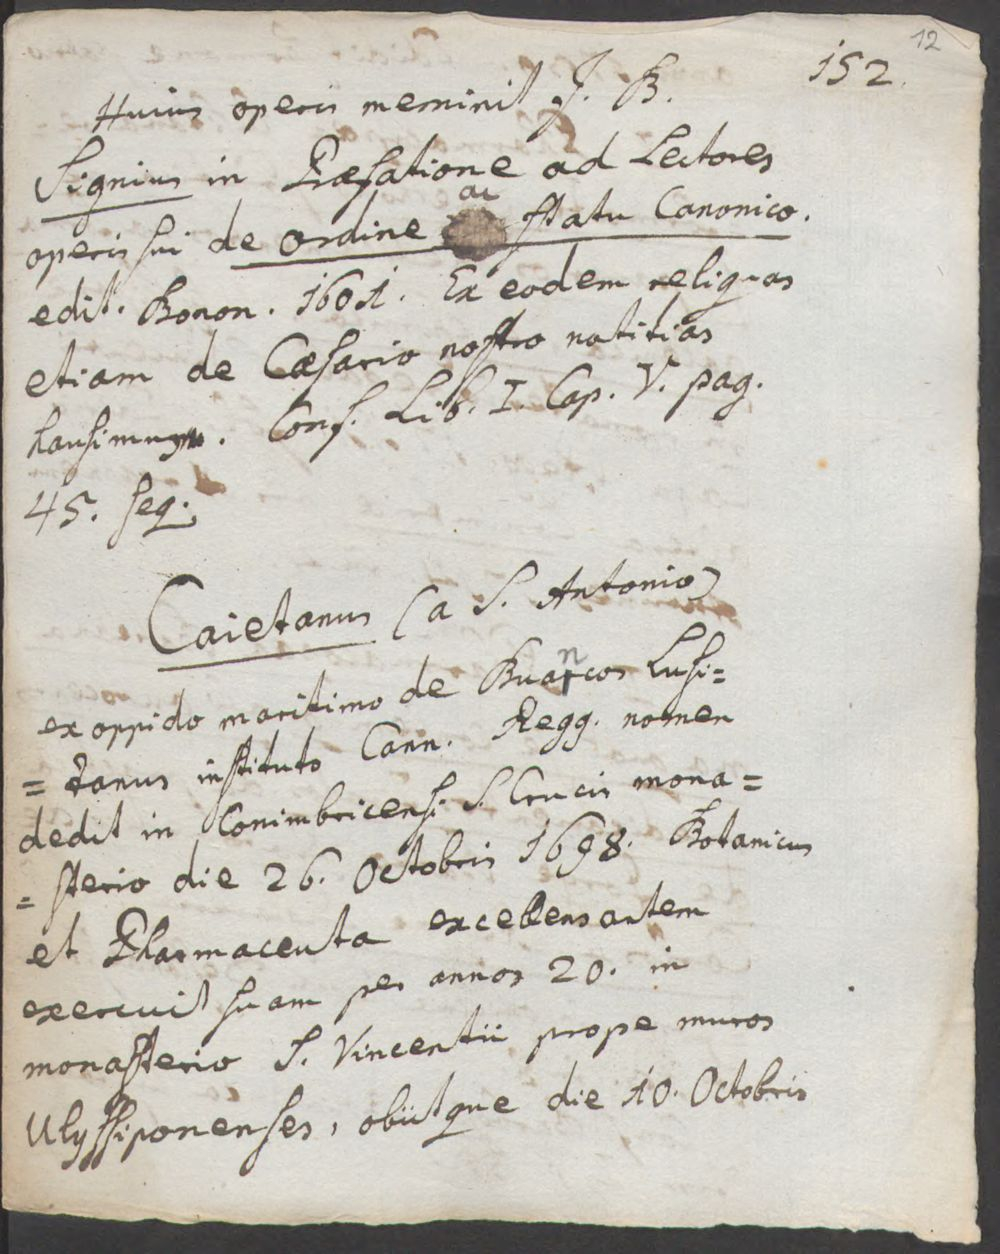 12
152.
Huius operis meminit J. B.
Signius in Præfatione ad Lectores
operis sui de ordine ac statu Canonico.
edit. Bonon. 1601. Ex eodem reliquas
etiam de Cæsario nostro notitias
hausimus. Conf. Lib. I. Cap. V. pag.
45. seq.
Caietanus (a S. Antonio)
ex oppido maritimo de Buarcos Lusi=
=tanus instituto Cann. Regg. nomen
dedit in Conimbricensi S. Crucis mona=
=sterio die 26. Octobris 1698. Botanicus
et Pharmaceuta excellens artem
exercuit suam per annos 20. in
monasterio S. Vincentii prope muros
Ulyssiponenses, obiitque die 10. Octobris